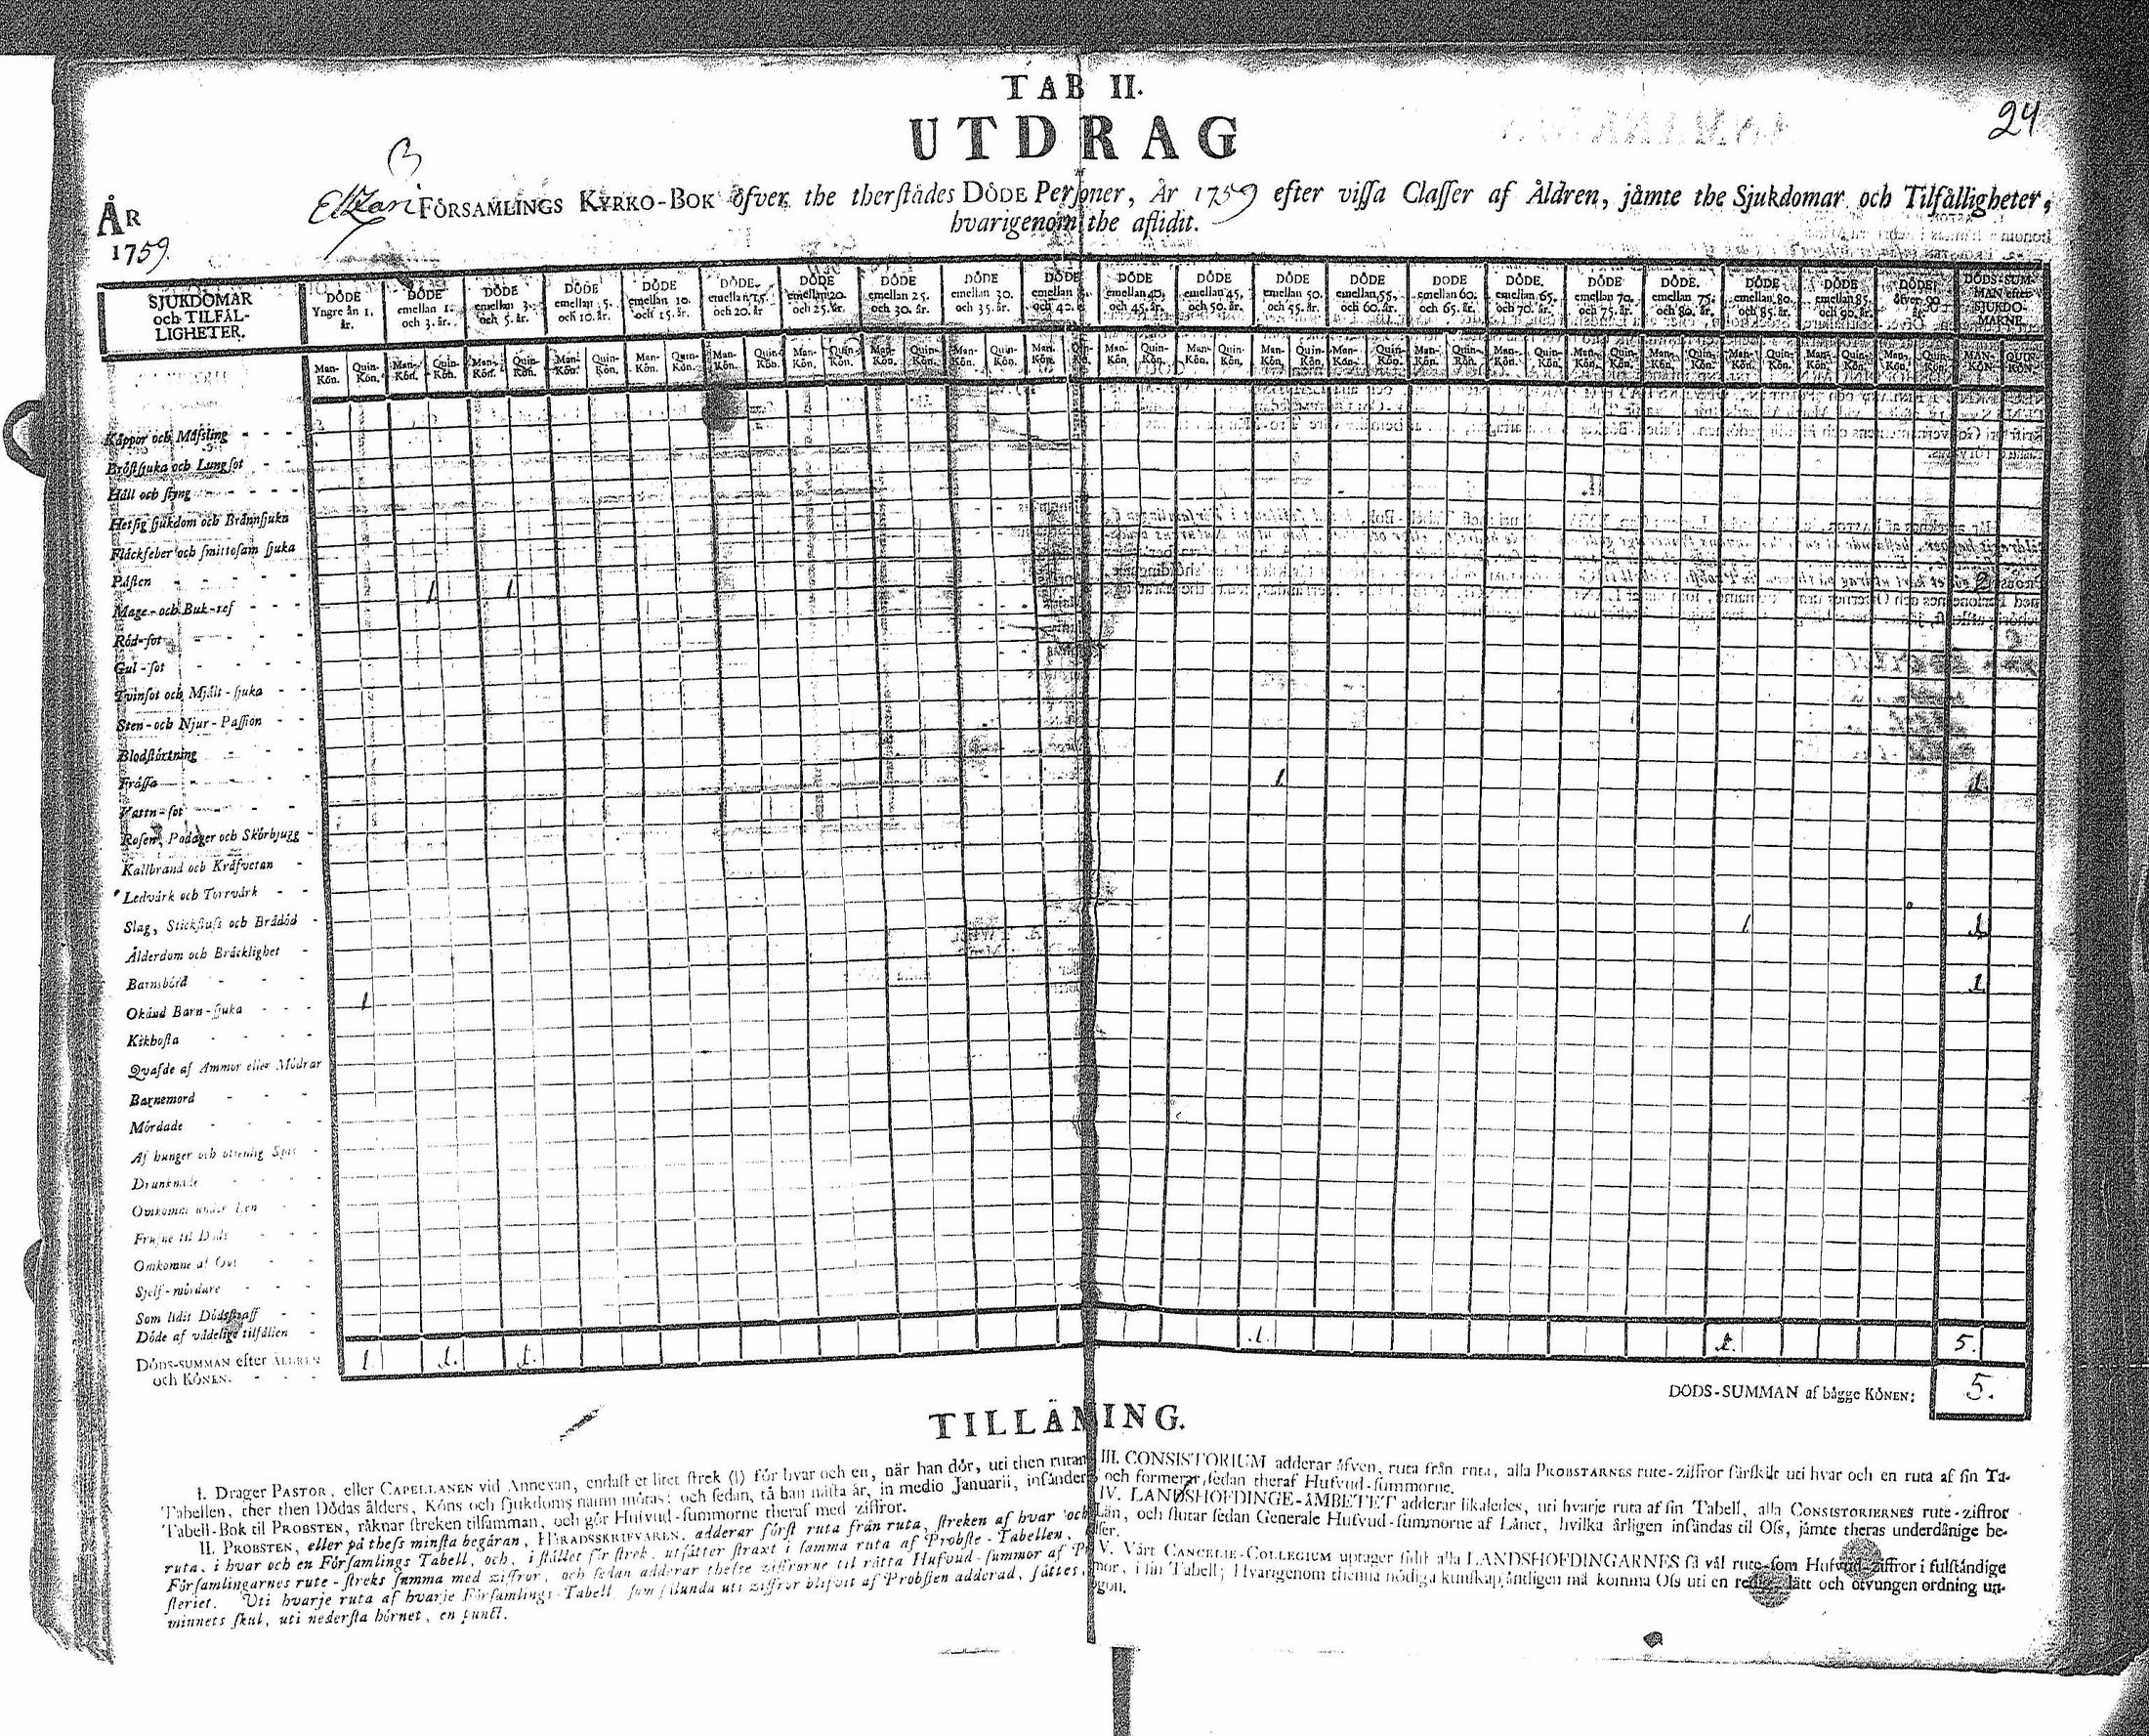 TAB II.
UTDRAG
24
ÅR
1759.
FÖRSAMLINGS KYRKO-BOK öfver the therstädes DÖDE Personer, År 1759 efter vissa Classer af Åldren, jämte the Sjukdomar och Tilfälligheter,
hvarigenom the aflidit.
SJUKDOMAR och TILFÄLLIGHETER.
DÖDE Yngre än 1. år.
DÖDE emellan 1. och 3. år.
DÖDE emellan 3. och 5. år.
DÖDE emellan 5. och 10. år.
DÖDE emellan 10. och 15. år.
DÖDE emellan 15. och 20. år
DÖDE emellan 20. och 25. år.
DÖDE emellan 25. och 30. år.
DÖDE emellan 30. och 35. år.
DÖDE emellan och 40.
DÖDE emellan 40. och 45. år.
DÖDE emellan 45. och 50. år.
DÖDE emellan 50. och 55. år.
DÖDE emellan 55. och 60. år.
DÖDE emellan 60. och 65. år.
DÖDE emellan 65. och 70. år.
DÖDE emellan 70. och 75. år.
DÖDE emellan 75. och 80. år.
DÖDE emellan 80. och 85. år.
DÖDE emellan 85. och 90. år.
DÖDE öfver 90 år.
DÖDS-SUMMAN efter SJUKDOMARNE.
Man-Kön. Quin-Kön. Man-Kön. Quin-Kön. Man-Kön. Quin-Kön. Man-Kön. Quin-Kön. Man-Kön. Quin-Kön. Man-Kön. Quin-Kön. Man-Kön. Quin-Kön. Man-Kön. Quin-Kön. Man-Kön. Quin-Kön. Man-Kön. Quin-Kön. Man-Kön. Quin-Kön. Man-Kön. Quin-Kön. Man-Kön. Quin-Kön. Man-Kön. Quin-Kön. Man-Kön. Quin-Kön. Man-Kön. Quin-Kön. Man-Kön. Quin-Kön. Man-Kön. Quin-Kön. Man-Kön. Quin-Kön. Man-Kön. Quin-Kön. Man-Kön. Quin-Kön. MAN-KÖN. QUIN-KÖN.
Kåppor och Mässling
Bröstsjuka och Lungsot
Håll och styng
Hetsig sjukdom och Brännsjuka
Fläckfeber och smittosam sjuka
Påsten
Mage- och Buk-ref 1 1 2
Röd-sot
Gul-sot
Tvinsot och Mjält-sjuka
Sten- och Njur-Passion
Blodstörtning
Frässa 1 1.
Vattn-sot
Rosen, Podager och Skörbjugg
Kallbrand och Kräfvetan
Ledvärk och Torrvärk
Slag, Stickfluss och Brådöd 1 1
Ålderdom och Bräcklighet
Barnsbörd 1
Okänd Barn-sjuka 1
Kikhosta
Qvafde af Ammor eller Mödrar
Barnemord
Mördade
Af hunger och otienlig Spis
Drunknade
Omkomne under Isen
Frusne til Döds
Omkomne af Os
Sjelf-mördare
Som lidit Dödsstraff
Döde af vådelige tilfällen
DÖDS-SUMMAN efter ÅLDREN och KÖNEN. 1 1. 1. 1. 1. 5.
DÖDS-SUMMAN af bägge KÖNEN: 5.
TILLÄMING.
I. Drager PASTOR, eller CAPELLANEN vid Annexan, endast et litet strek (l) för hvar och en, när han dör, uti then rutan
Tabellen, ther then Dödas ålders, Köns och sjukdoms namn mötas; och sedan, tå han nästa år, in medio Januarii, insänder
Tabell-Bok til PROBSTEN, räknar streken tilsamman, och gör Hufvud-summorne theraf med ziffror.
II. PROBSTEN, eller på thess minsta begäran, HÄRADSSKRIFVAREN, adderar först ruta från ruta, streken af hvar och
ruta, i hvar och en Församlings Tabell, och, i stället för strek, utsätter straxt i samma ruta af Probste-Tabellen,
Församlingarnes rute-streks summa med ziffror, och sedan adderar thesse ziffrorne til rätta Hufvud-summor af
steriet. Uti hvarje ruta af hvarje Församlings-Tabell, som sålunda uti ziffror blifvit af Probsten adderad, sättes,
minnets skul, uti nedersta hörnet, en punct.
III. CONSISTORIUM adderar äfven, ruta från ruta, alla PROBSTARNES rute-ziffror särskilt uti hvar och en ruta af sin Ta-
och formerar sedan theraf Hufvud-summorne.
IV. LANDSHÖFDINGE-ÄMBETET adderar likaledes, uti hvarje ruta af sin Tabell, alla CONSISTORIERNES rute-ziffror
Län, och slutar sedan Generale Hufvud-summorne af Länet, hvilka årligen insändas til Oss, jämte theras underdånige be-
ser.
V. Vårt CANCELIE-COLLEGIUM uptager sidst alla LANDSHÖFDINGARNES så väl rute- som Hufvud-ziffror i fulständige
mor, i sin Tabell; Hvarigenom thenna nödiga kunskap ändtligen må komma Oss uti en redig, lätt och otvungen ordning un-
ögon.